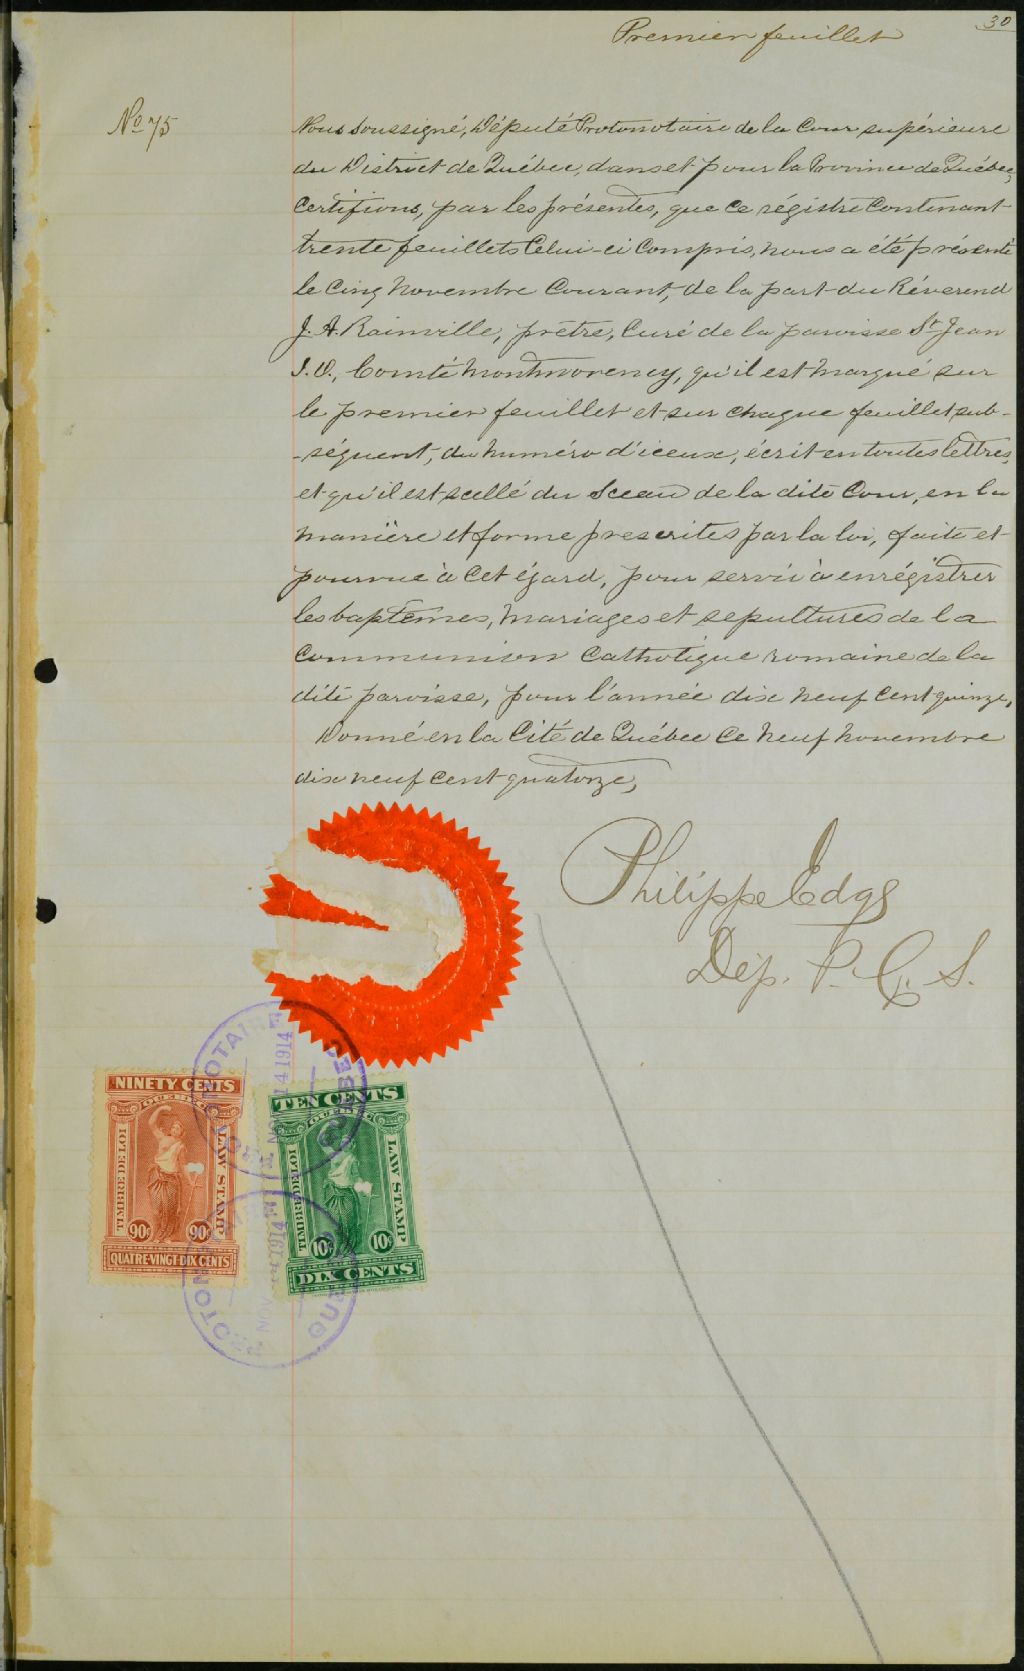 30
Premier feuillet
No 75
Nous soussigné, Député Protonotaire de la Cour supérieure
du District de Québec, dans et pour la Province de Québec,
Certifions, par les présentes, que ce régistre Contenant
trente feuillets Celui-ci Compris, nous a été présenté
le Cinq Novembre Courant, de la part du Réverend
J. A. Rainville, prêtre, Curé de la paroisse St Jean
I. O., Comté Montmorency, qu'il est Marqué sur
le premier feuillet et sur chaque feuillet sub-
-séquent, du Numéro d'iceux, écrit en toutes lettres,
et qu'il est scellé du Sceau de la dite Cour, en la
manière et forme prescrites par la loi, faite et
pourvue à Cet égard, pour servir à enrégistrer
les baptêmes, Mariages et sepultures de la
Communion Catholique romaine de la
dite paroisse, pour l'année dix neuf Cent quinze,
Donné en la Cité de Québec Ce Neuf Novembre
dix neuf Cent quatorze,
Philippe Edge
Dép. P. C. S.
NINETY CENTS
QUEBEC
TIMBRE DE LOI
LAW STAMP
90c 90c
QUATRE-VINGT-DIX CENTS
TEN CENTS
QUEBEC
TIMBRE DE LOI
LAW STAMP
10c 10c
DIX CENTS
PROTONOTAIRE
NOV 14 1914
QUEBEC
NOV 14 1914